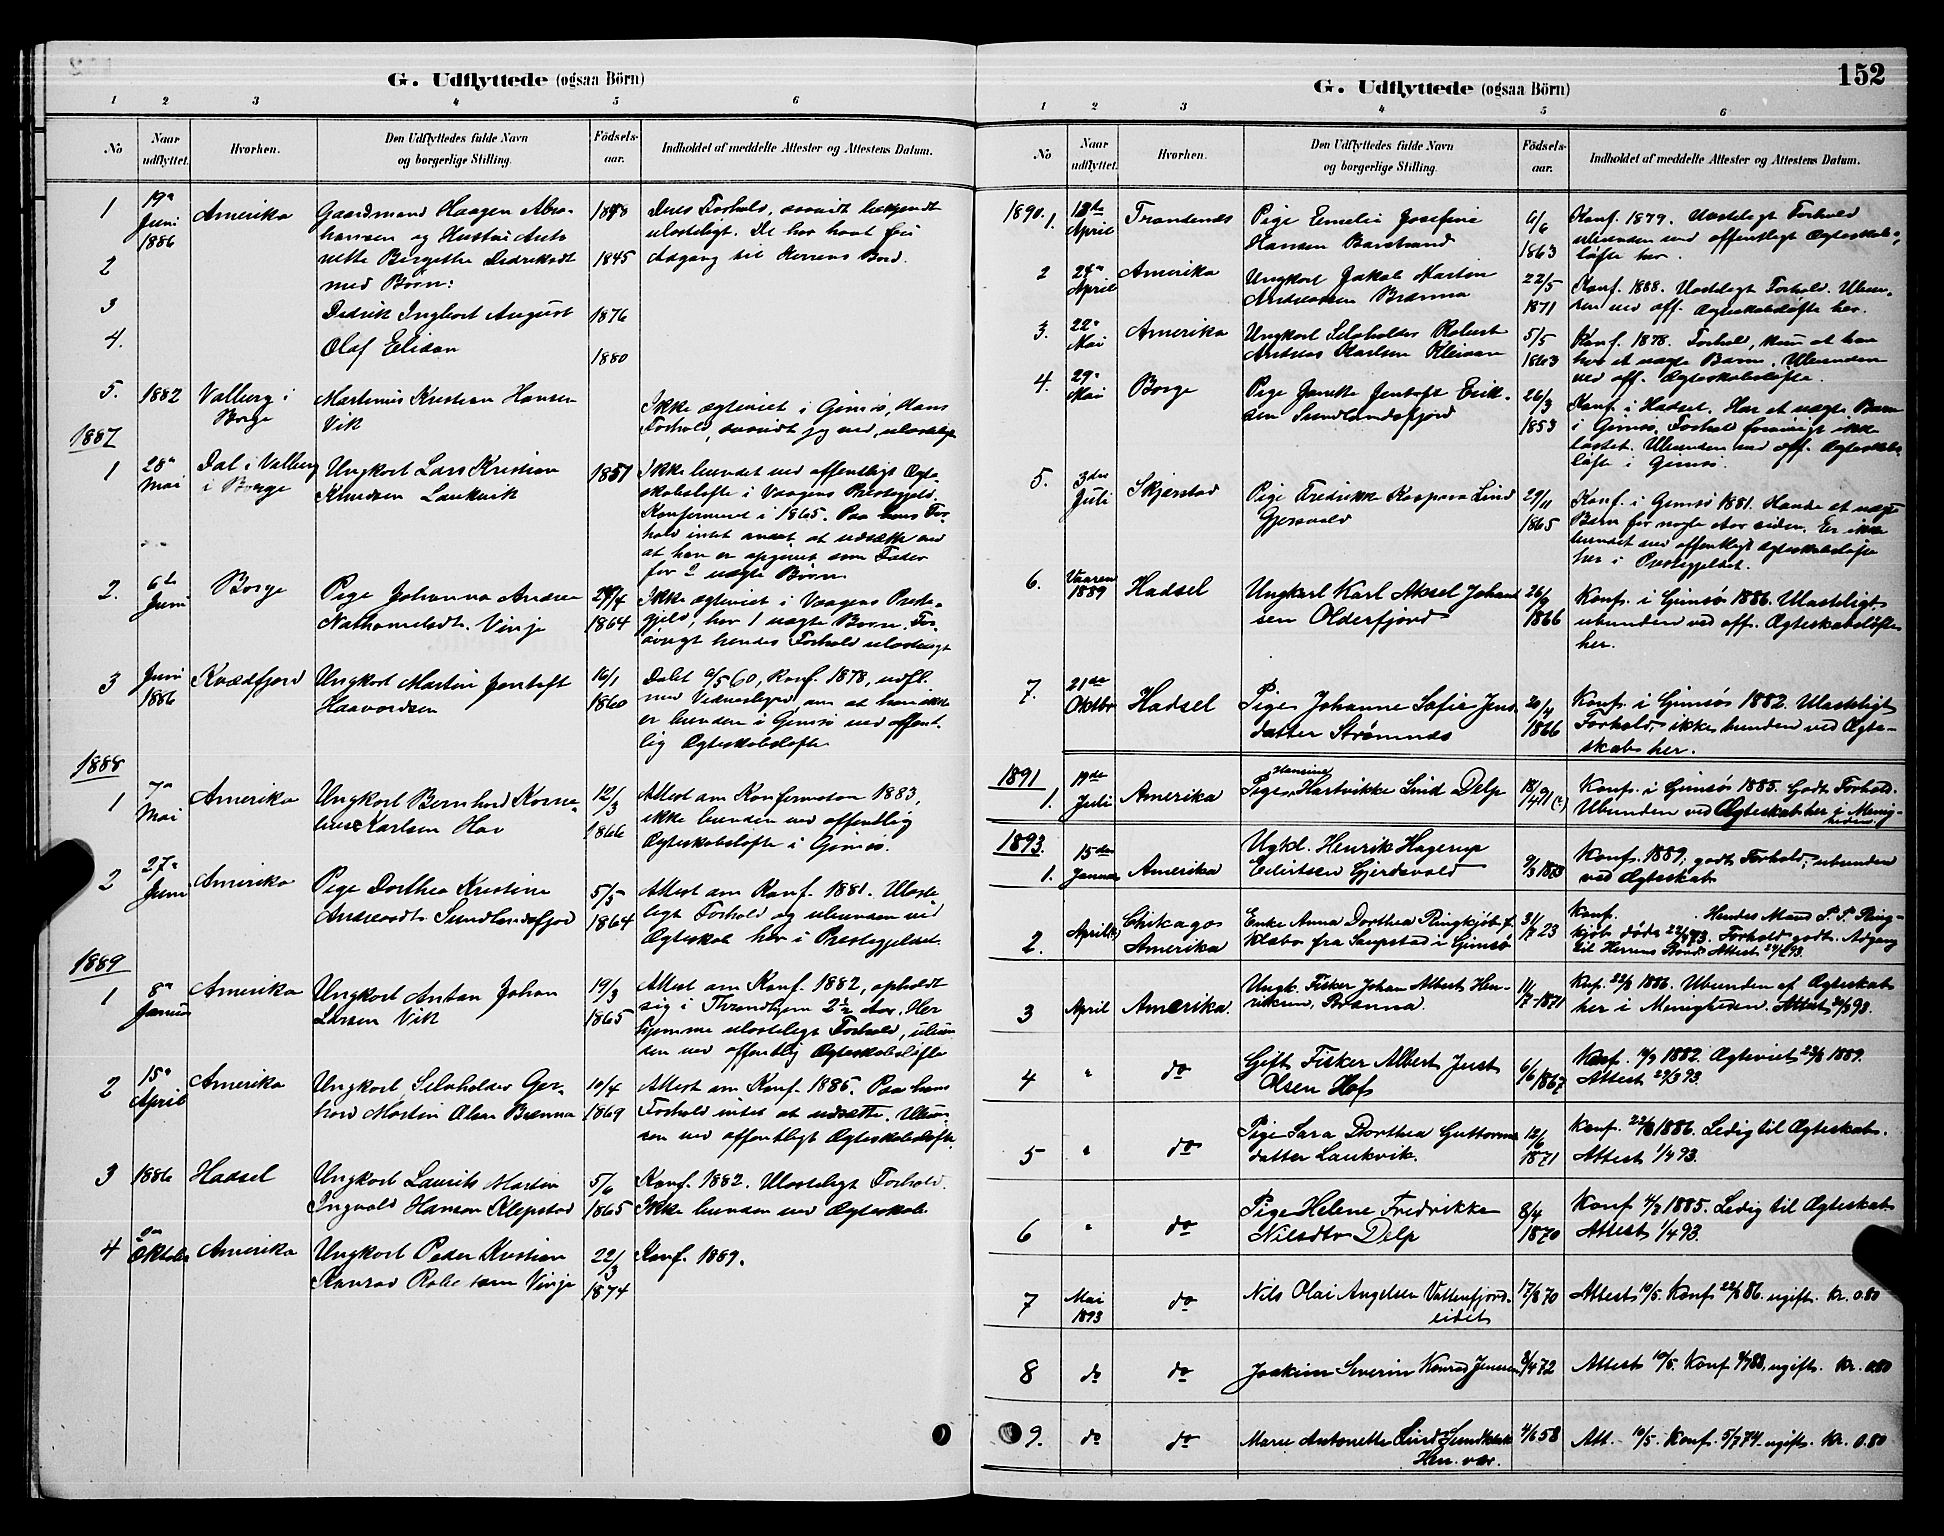 G. Udflyttede (ogsaa Börn)
1 2 3 4 5 6
No
Naar udflyttet.
Hvorhen.
Den Udflyttedes fulde Navn
og borgerlige Stilling.
Födsels-
aar.
Indholdet af meddelte Attester og Attestens Datum.
1 19de Juni 1886 Amerika Gaardmand Haagen Abra- 1843 Deres Forhold, saavidt bekjendt
hansen og Hustru Anto ulasteligt. De har havt fri
2 nette Bergithe Didriksdt 1845 Adgang til Herrens Bord.
med Børn:
3 Didrik Ingbart August 1876
4. Olaf Elidan 1880
5. 1882 Valberg i Borge Martinus Kristian Hansen Vik
Ikke ægteviet i Gimsø, Hans
Forhold, saavidt jeg ved, ulasteligt
1887
1 28de Mai Dal i Valberg i Borge Ungkarl Lars Kristian Knudsen Laukvik 1851
Ikke bundet ved offentligt Ægte-
skabsløfte i Vaagens Prestegjeld.
Konfirmeret i 1865. Paa hans For-
hold intet andet at udsætte end
at han er opgivet som Fader
for 2 uægte Børn.
2. 6te Juni Borge Pige Johanna Andrea Nathanielsdt. Vinje 24/4 1864
Ikke ægteviet i Vaagens Preste-
gjeld, har 1 uægte Barn. For-
øvrigt hendes Forhold ulasteligt
3 Juni 1886 Kvædfjord Ungkarl Martin Jentoft Haavardsen 16/1 1860
Døbt 6/5 60, Konf. 1878, udfl.
med Vidnesbyrd om at han ikke
er bunden i Gimsø ved offent-
lig Ægteskabsløfte
1888
1 7de Mai Amerika Ungkarl Bernhard Korne- lius Karlsen Hov 12/3 1866
Attest om Konfirmation 1883,
ikke bunden ved offentlig
Ægteskabsløfte i Gimsø.
2 27de Juni Amerika Pige Dorthea Kristine Andreasdt. Sundlandsfjord 5/5 1864
Attest om Konf. 1881. Ulaste-
ligt Forhold og ubunden ved
Ægteskab her i Prestegjeldet
1889
1 8de Januar Amerika Ungkarl Anton Johan Larsen Vik 19/3 1865
Attest om Konf. 1882, opholdt
sig i Trondhjem 2½ Aar. Her
hjemme ulasteligt Forhold, ubun-
den ved offentlig Ægteskabsløfte
2 15de April Amerika Ungkarl Selvholder Ger- hard Martin Olsen Brenna 10/4 1869
Attest om Konf. 1885. Paa hans
Forhold intet at udsætte. Ubun-
den ved offentligt Ægteskabsløfte.
3 1886 Hadsel Ungkarl Laurits Martin Ingvald Hansen Klepstad 5/6 1865
Konf. 1882. Ulasteligt Forhold.
Ikke bunden ved Ægteskab
4 Oktober Amerika Ungkarl Peder Kristian Konrad Vinje 22/3 1874
Konf. 1889.
G. Udflyttede (ogsaa Börn)
152
1 2 3 4 5 6
No
Naar udflyttet.
Hvorhen.
Den Udflyttedes fulde Navn
og borgerlige Stilling.
Födsels-
aar.
Indholdet af meddelte Attester og Attestens Datum.
1890. 1. April Trondenes Pige Emelie Josefine Hansen Barstrand 6/6 1863
Konf. 1879. Ulasteligt Forhold
ubunden ved offentligt Ægteskabs-
løfte her.
2 April Amerika Ungkarl Jakob Martin Andreassen Brenna 22/5 1871
Konf. 1888. Ulasteligt Forhold. Ubun-
den ved off. Ægteskabsløfte her.
3. 22de Mai Amerika Ungkarl Selvholder Robert Andreas Karlsen Kleivan 5/5 1863
Konf. 1878. Forhold, kun at han
har et uægte Barn. Ubunden
ved off. Ægteskabsløfte.
4. 29de Mai Borge Pige Janikke Jentoft Erik- sen Sundlandsfjord 26/3 1853
Konf. i Hadsel. Har et uægte Barn
i Gimsø. Forhold forøvrigt ikke
lastet. Ubunden ved off. Ægteskabs-
løfte i Gimsø.
5. 3die Juli Skjerstad Pige Fredrikke Kaspara Lind Gjersvold 29/11 1865
Konf. i Gimsø 1881. Havde et uægte
Barn for nogle Aar siden. Er ikke
bundet ved offentligt Ægteskabsløfte
her i Prestegjeldet.
6. Vaaren 1889 Hadsel Ungkarl Karl Aksel Johan sen Olderfjord 26/9 1866
Konf. i Gimsø 1886. Ulasteligt
ubunden ved off. Ægteskabsløfte
her.
7. 21de Oktbr Hadsel Pige Johanne Sofie Jens datter Strømnes 20/4 1866
Konf. i Gimsø 1882. Ulasteligt
Forhold, ikke bunden ved Ægte-
skab her.
1891
1. 19de Juli Amerika Pige Hansine Hartvikke Lind Delp 18/4 91 (?)
Konf. i Gimsø 1885. Godt Forhold.
Ubunden ved Ægteskab her i Menig-
heden
1893.
1. 15de Januar Amerika Ugkl. Henrik Hagerup Eilertsen Gjerdsvold 9/3 1873
Konf. 1889; godt Forhold, ubunden
ved Ægteskab
2. April Chikago Amerika Enke Anna Dorthea Ringkjøb f. Klæbo fra Saupstad i Gimsø 31/7 23
Konf. Hendes Mand P. P. Ring-
kjøb døde 22/4 73. Forhold godt. Adgang
til Herrens Bord. Attest 24/2 93.
3 April Amerika. Ungk. Fisker Johan Albert Hen- riksen, Brænna. 11/7 1871
Konf. 22/8 1886. Ubunden af Ægteskab
her i Menigheden. Attest 24/3 93.
4 " do Gift Fisker Albert Just Olsen Hof 6/6 1867
Konf. 1882. Ægteviet 23/8 1889.
Attest 29/3 93.
5 " do Pige Sara Dorthea Guttorms datter Laukvik. 12/6 1871
Konf. 22/8 1886. Ledig til Ægteskab.
Attest 1/4 93.
6 " do Pige Helene Fredrikke Nilsdtr Delp 8/4 1870
Konf 1885. Ledig til Ægteskab
Attest 1/4 93.
7 Mai 1893 do Nils Olai Angelsen Vattenfjord- eidet 17/8 70 Attest 10/5. Konf 22/8 86. ugift. Kr. 0.80
8 do do Joakim Severin Konrad Jensen 3/4 72 Attest 10/5. Konf 88, ugift. Kr. 0.80
9. do do Marie Antonette Lind Sundklak Hen. vær. 4/6 58 Att. 10/5. Konf. 5/7 74 ugift. Kr. 0.80